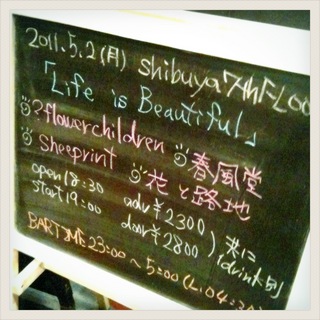 2011.5.2(月) shibuya 7thFLOO
「Life is Beautiful」
?flowerchildren 春風堂
Sheeprint 花と路地
open 18:30 adv ¥2300
start 19:00 door ¥2800
共に 1drink別
BARTIME 23:00〜5:00 (L.O 4:30)